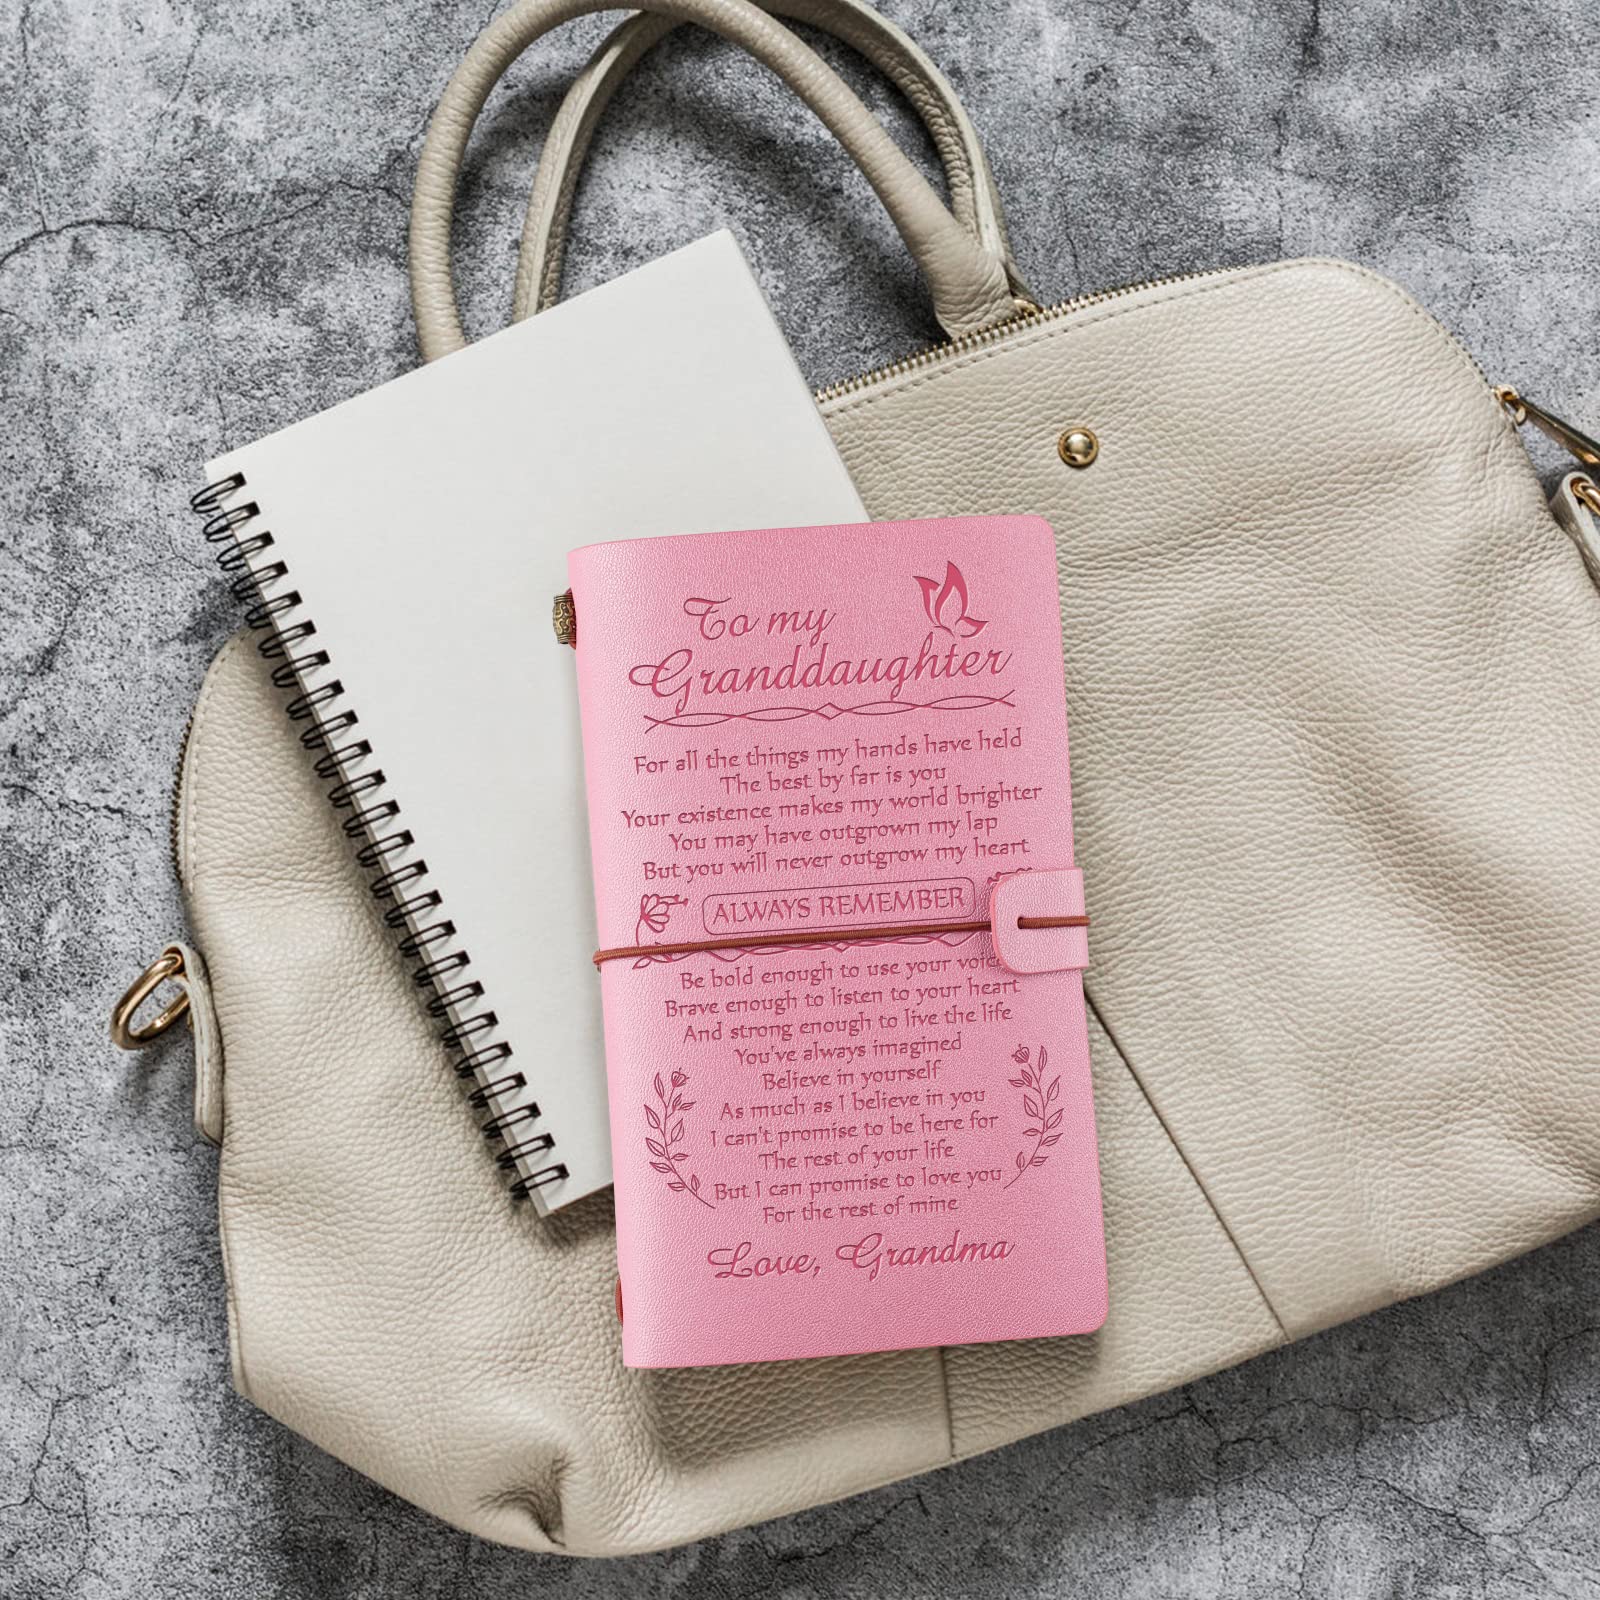 To my
Granddaughter
For all the things my hands have held
The best by far is you
Your existence makes my world brighter
You may have outgrown my lap
But you will never outgrow my heart
ALWAYS REMEMBER
Be bold enough to use your voice
Brave enough to listen to your heart
And strong enough to live the life
You've always imagined
Believe in yourself
As much as I believe in you
I can't promise to be here for
The rest of your life
But I can promise to love you
For the rest of mine
Love, Grandma